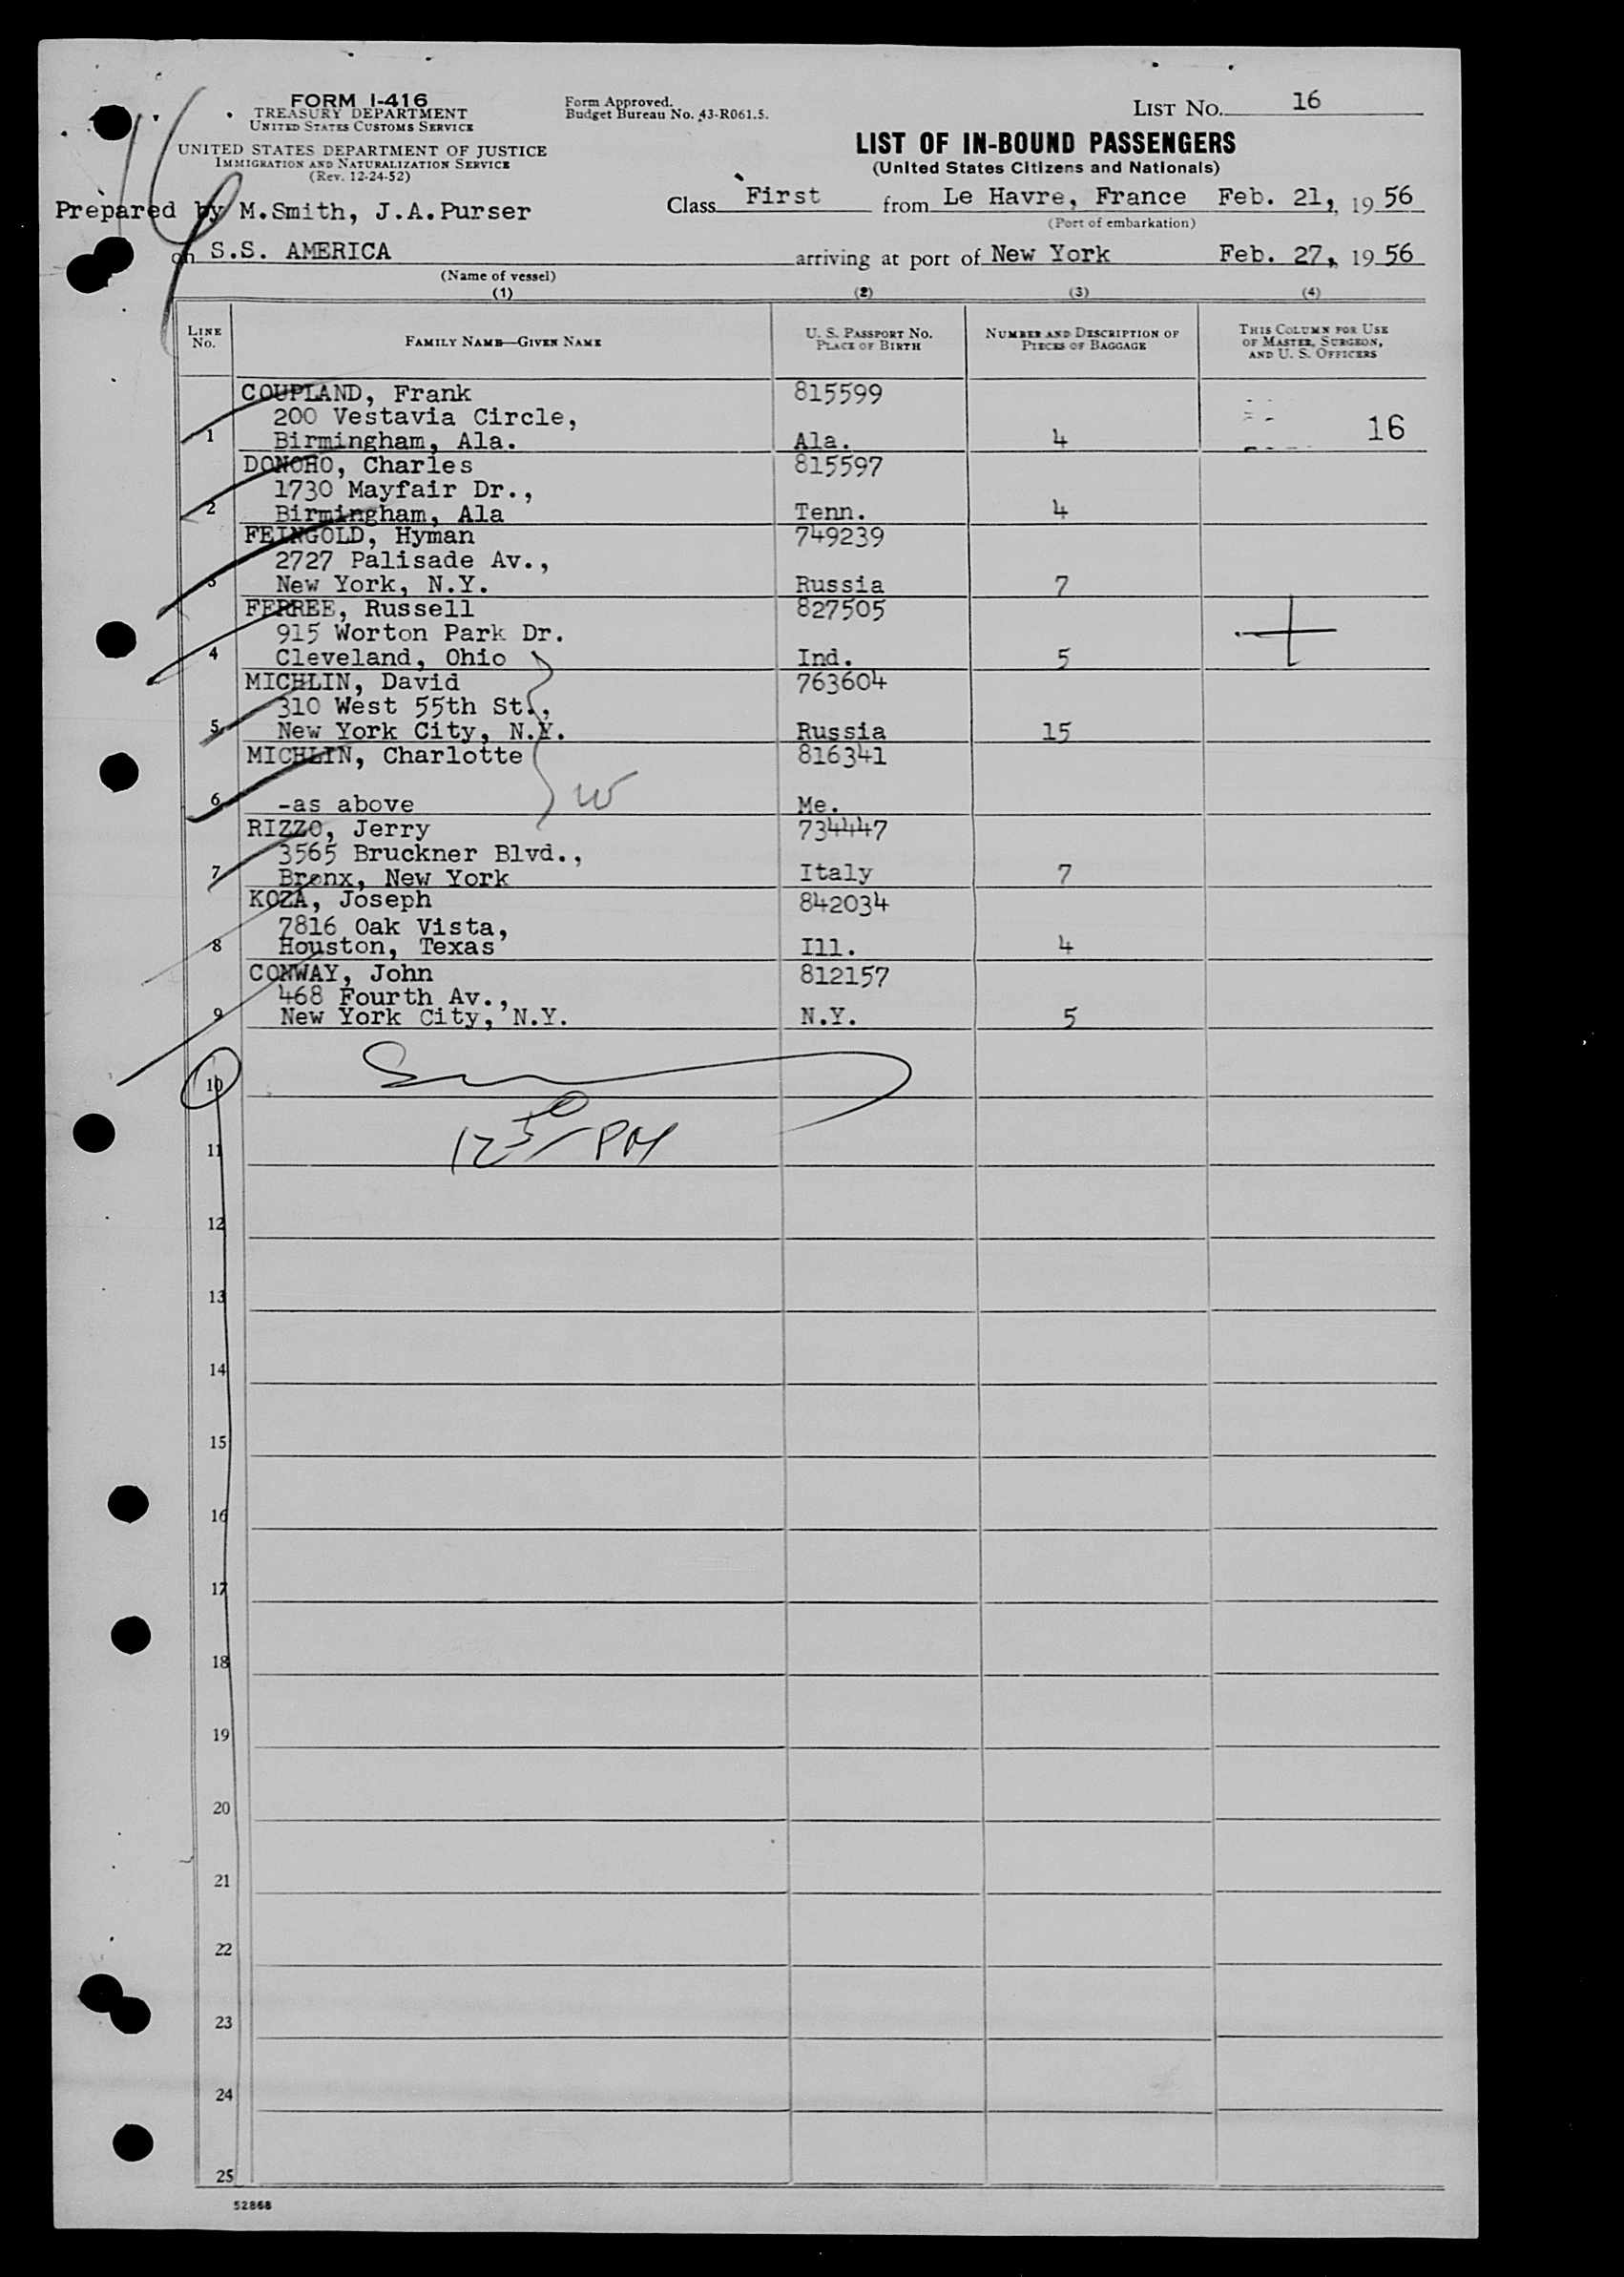 FORM I-416
TREASURY DEPARTMENT
UNITED STATES CUSTOMS SERVICE
UNITED STATES DEPARTMENT OF JUSTICE
IMMIGRATION AND NATURALIZATION SERVICE
(Rev. 12-24-52)
Form Approved.
Budget Bureau No. 43-R061.5.
LIST NO. 16
LIST OF IN-BOUND PASSENGERS
(United States Citizens and Nationals)
Prepared by M.Smith, J.A.Purser
Class First from Le Havre, France Feb. 21, 1956
(Port of embarkation)
on S.S. AMERICA arriving at port of New York Feb. 27, 1956
(Name of vessel)
(1) (2) (3) (4)
LINE NO. FAMILY NAME—GIVEN NAME U. S. PASSPORT NO. PLACE OF BIRTH NUMBER AND DESCRIPTION OF PIECES OF BAGGAGE THIS COLUMN FOR USE OF MASTER, SURGEON, AND U. S. OFFICERS
COUPLAND, Frank 815599
200 Vestavia Circle,
1 Birmingham, Ala. Ala. 4 16
DONOHO, Charles 815597
1730 Mayfair Dr.,
2 Birmingham, Ala Tenn. 4
FEINGOLD, Hyman 749239
2727 Palisade Av.,
3 New York, N.Y. Russia 7
FERREE, Russell 827505
915 Worton Park Dr.
4 Cleveland, Ohio Ind. 5
MICHLIN, David 763604
310 West 55th St.,
5 New York City, N.Y. Russia 15
MICHLIN, Charlotte 816341
W
6 -as above Me.
RIZZO, Jerry 734447
3565 Bruckner Blvd.,
7 Bronx, New York Italy 7
KOZA, Joseph 842034
7816 Oak Vista,
8 Houston, Texas Ill. 4
CONWAY, John 812157
468 Fourth Av.,
9 New York City, N.Y. N.Y. 5
10
12 30 PM
11
12
13
14
15
16
17
18
19
20
21
22
23
24
25
52868